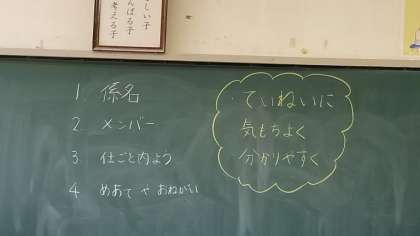 しい子
んばる子
考える子
1. 係名
2. メンバー
3. 仕ごと内よう
4 めあて や おねがい
・ていねいに
気もちよく
分かりやすく